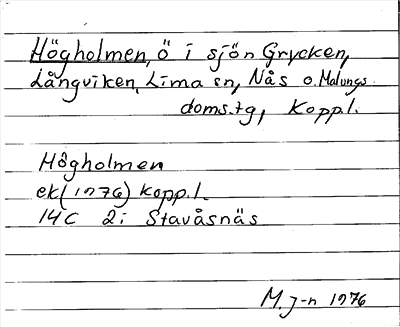 Högholmen, ö i sjön Grycken,
Långviken, Lima sn, Nås o. Malungs
doms.tg, Koppl.
Högholmen
ek(1976) Koppl.
14C 2i Stavåsnäs
M.J-n 1976